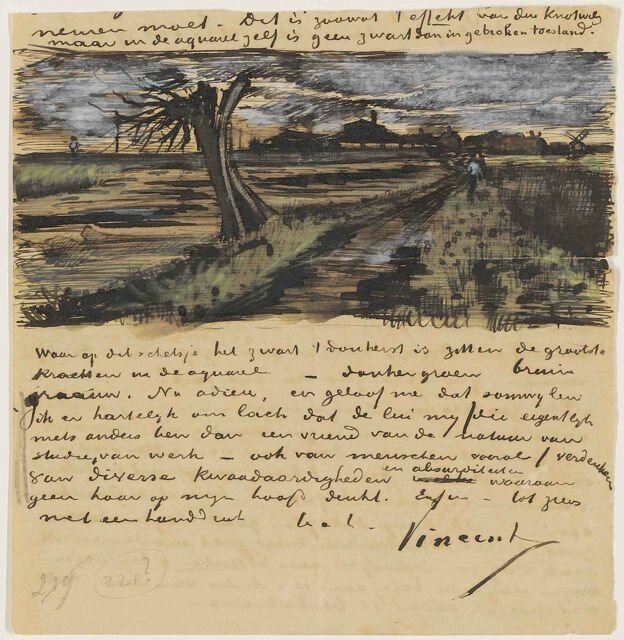 nemen moet. Dit is zoowat 't effekt van den Knotwilg
maar in de aquarel zelf is geen zwart dan in gebroken toestand.
Waar op dit schetsje het zwart 't donkerst is zitten de grootste
krachten in de aquarel – donkergroen bruin
graauw. Nu adieu, en geloof me dat somwijlen
ik er hartelijk om lach dat de lui mij /die eigentlijk
niets anders ben dan een vriend van de natuur van
studie, van werk – ook van menschen vooral/ verdenken
van diverse kwaadaardigheden en absurditeiten waaraan
geen haar op mijn hoofd denkt. Enfin – tot ziens
met een handdruk
Vincent